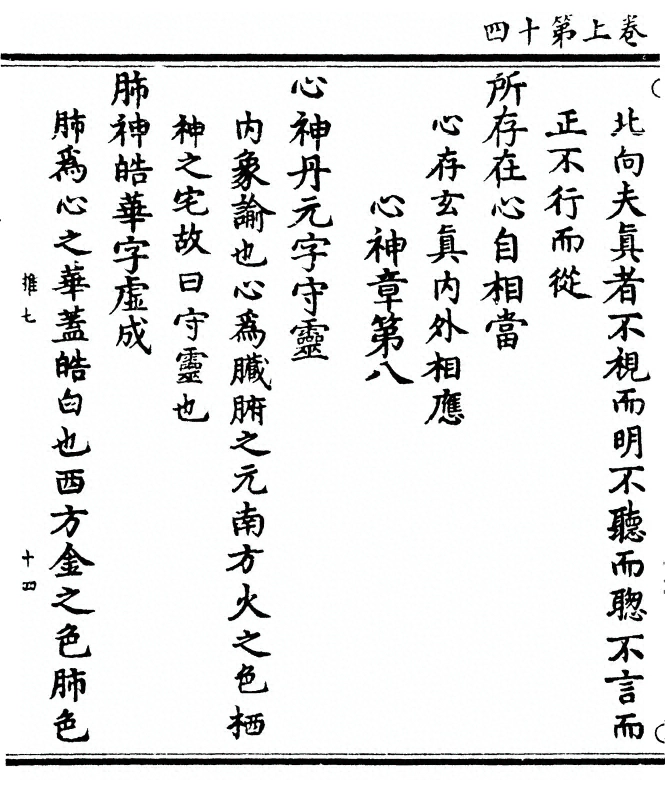 卷上第十四
北向夫眞者不視而明不聽而聰不言而
正不行而從
所存在心自相當
心存玄眞內外相應
心神章第八
心神丹元字守靈
內象諭也心爲臟腑之元南方火之色栖
神之宅故曰守靈也
肺神皓華字虛成
肺爲心之華蓋皓白也西方金之色肺色
推七
十四